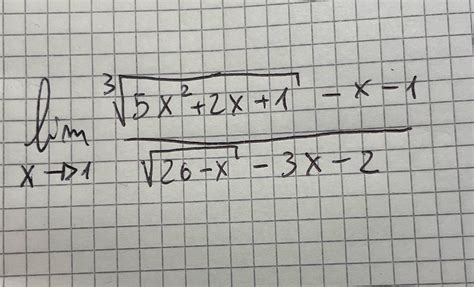 lim x→1 (∛(5x²+2x+1) - x - 1) / (√(26-x) - 3x - 2)